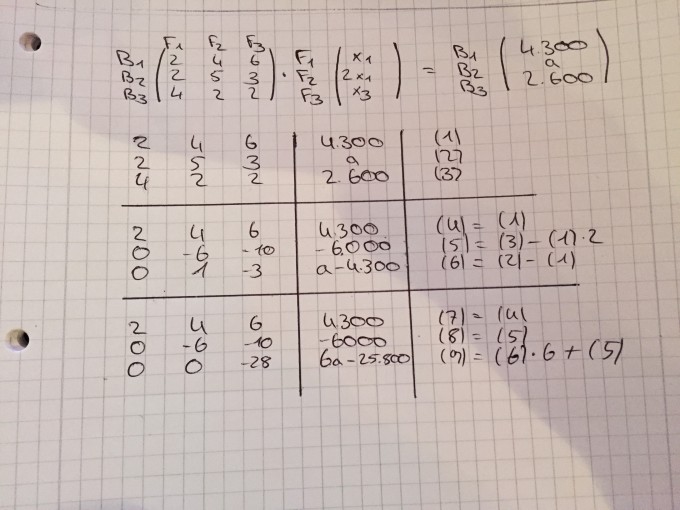 F1 F2 F3
B1 ( 2 4 6 ) · F1 ( x1 ) = B1 ( 4.300 )
B2 ( 2 5 3 ) F2 ( 2x1 ) B2 ( a )
B3 ( 4 2 2 ) F3 ( x3 ) B3 ( 2.600 )
2 4 6 | 4.300 | (1)
2 5 3 | a | (2)
4 2 2 | 2.600 | (3)
2 4 6 | 4.300 | (4) = (1)
0 -6 -10 | -6.000 | (5) = (3) - (1)·2
0 1 -3 | a-4.300 | (6) = (2) - (1)
2 4 6 | 4300 | (7) = (4)
0 -6 -10 | -6000 | (8) = (5)
0 0 -28 | 6a-25.800 | (9) = (6)·6 + (5)